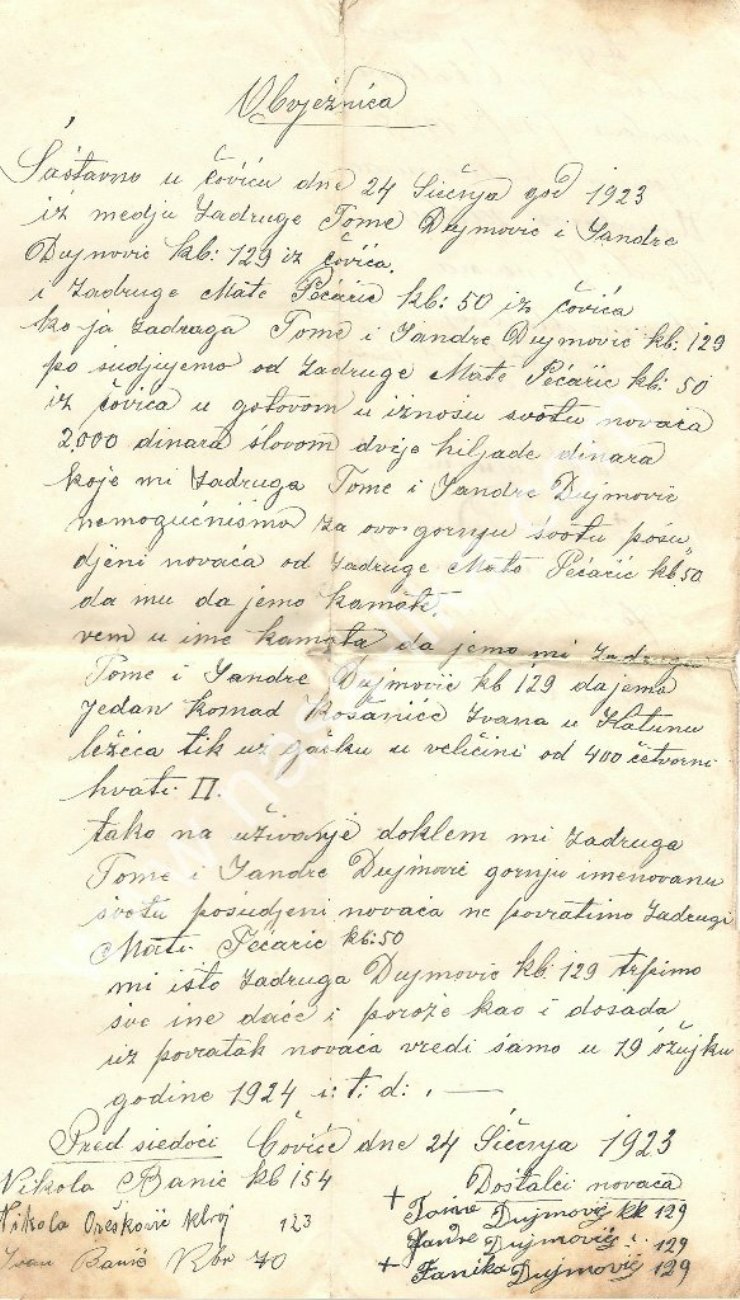 Obvježnica
Sástavno u čoviću dne 24 Siečnja god 1923
iz medju Zadruge Tome Dujmović i Jandre
Dujnović kb: 129 iz čovića.
i Zadruge Mate Pećarić kb: 50 iz čovića
ko ja zadraga Tome i Jandre Dujmović kb: 129
po sudjujemo od Zadruge Mate Pećarić kb: 50
iz čovića u gotovom u iznosu svotu novaća
2.000 dinara slovom dvije hiljade dinara
koje mi Zadruga Tome i Jandre Dujmović
nemogućnismo za ovo gornju svotu posu„
djeni novaća od Zadruge Mato Pećarić kb. 50
da mu da jemo kamate.
vem u ime kamata da jemo mi Zadruga
Tome i Jandre Dujmović kb 129 dajemo
jedan komad Košaniće Ivana u Klatunu
ležéća tik uz gačku u veličini od 400 četvorni
hvati
tako na uživanje doklem mi zadruga
Tome i Jandre Dujmović gornju imenovanu
svotu posudjeni novaća ne povratimo Zadrugi
Mati Pećarić kb: 50
mi isto Zadruga Dujmović kb: 129 trpimo
sve ine daće i poroże kao i dosada
uz povratak novaća vredi samo u 19 óžujku
godine 1924 i: t: d: . —
Pred siedoći Čoviće dne 24 Siečnja 1923
Nikola Banić kb 154
Dostalci novaća
Nikola Orešković kbroj 123
+ Tome Dujmović kb 129
Jandre Dujmović :. 129
Ivan Banić Kbr 70
+ Fanika Dujmović 129